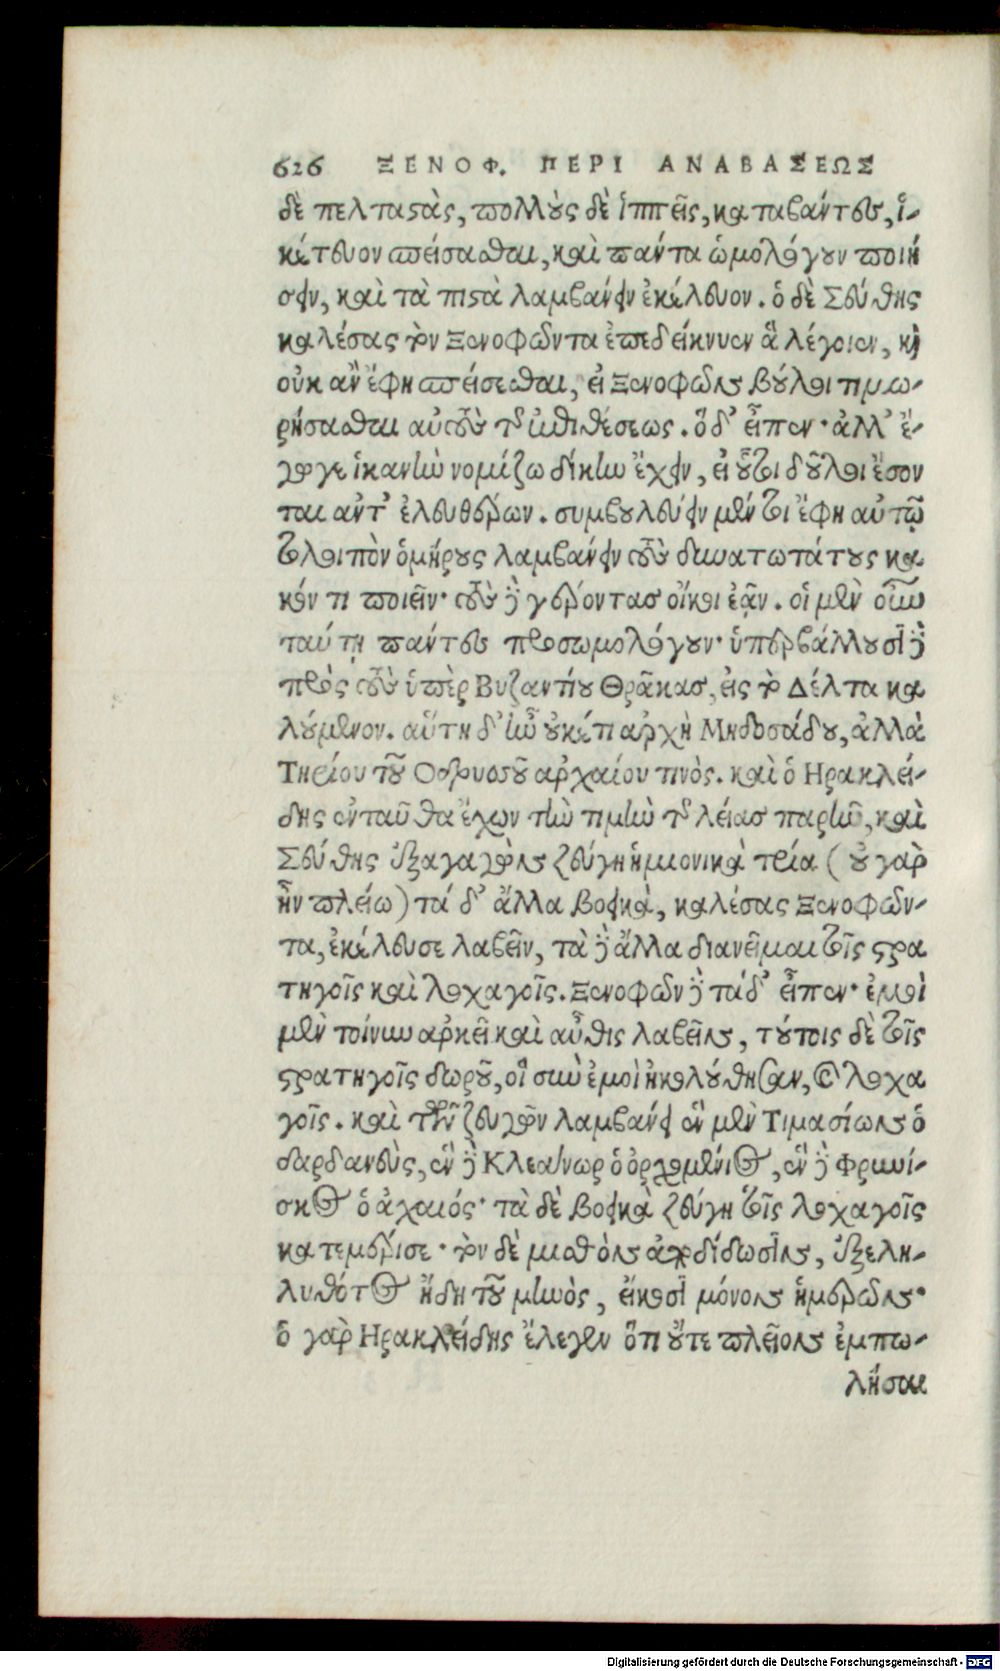 626 ΞΕΝΟΦ. ΠΕΡΙ ΑΝΑΒΑΣΕΩΣ
δὲ πελταϛὰς, πολλοὺς δὲ ἱππεῖς, καταβάντες, ἱ-
κέτευον σπείσασθαι, καὶ πάντα ὡμολόγουν ποιή
σειν, καὶ τὰ πιϛὰ λαμβάνειν ἐκέλευον. ὁ δὲ Σεύθης
καλέσας τὸν Ξενοφῶντα ἐπεδείκνυεν ἃ λέγοιεν, καὶ
οὐκ ἂν ἔφη σπείσεσθαι, εἰ Ξενοφῶν βούλοι τιμω-
ρήσασθαι αὐτοὺς τῆς ἐπιθέσεως. ὅ δ' εἶπεν· ἀλλ' ἔ-
γωγε ἱκανὴν νομίζω δίκην ἔχειν, εἰ οὗτοι δοῦλοι ἔσον
ται ἀντ' ἐλευθέρων. συμβουλεύειν μέν τοι ἔφη αὐτῷ
τολοιπὸν ὁμήρους λαμβάνειν τοὺς δυνατωτάτους κα
κόν τι ποιεῖν· τοὺς δὲ γέροντασ οἴκοι ἐᾷν. οἱ μὲν οὖν
ταύτῃ πάντες προσωμολόγουν· ὑπερβάλλουσι δὲ
πρὸς τοὺς ὑπὲρ Βυζαντίου Θρᾶκασ, εἰς τὸ Δέλτα κα
λούμενον. αὕτη δ' ἦν οὐκέτι ἀρχὴ Μηδοσάδου, ἀλλὰ
Τηρίου τοῦ Οδρυσοῦ ἀρχαίου τινὸς. καὶ ὁ Ηρακλεί-
δης ἐνταῦθα ἔχων τὴν τιμὴν τῆς λείασ παρῆν, καὶ
Σεύθης ἐξαγαγὼν ζεύγη ἡμιονικὰ τρία (οὐ γὰρ
ἦν πλείω) τά δ' ἄλλα βοεικὰ, καλέσας Ξενοφῶν-
τα, ἐκέλευσε λαβεῖν, τὰ δὲ ἄλλα διανεῖμαι τοῖς ϛρα
τηγοῖς καὶ λοχαγοῖς. Ξενοφῶν δὲ τάδ' εἶπεν· ἐμοὶ
μὲν τοίνυν ἀρκεῖ καὶ αὖθις λαβεῖν, τούτοις δὲ τοῖς
ϛρατηγοῖς δωροῦ, οἳ σὺν ἐμοὶ ἠκολούθησαν, καὶ λοχα
γοῖς. καὶ τῶν ζευγῶν λαμβάνει ἓν μὲν Τιμασίων ὁ
δαρδανεὺς, ἓν δὲ Κλεάνωρ ὁ ὀρχομένιος, ἓν δὲ Φρυνί-
σκος ὁ ἀχαιός· τὰ δὲ βοεικὰ ζεύγη τοῖς λοχαγοῖς
κατεμέρισε· τὸν δὲ μισθὸν ἀποδίδωσιν, ἐξελη-
λυθότος ἤδη τοῦ μηνὸς, εἴκοσι μόνον ἡμερῶν·
ὁ γὰρ Ηρακλείδης ἔλεγεν ὅτι οὔτε πλεῖον ἐμπω-
λῆσαι
Digitalisierung gefördert durch die Deutsche Forschungsgemeinschaft - DFG